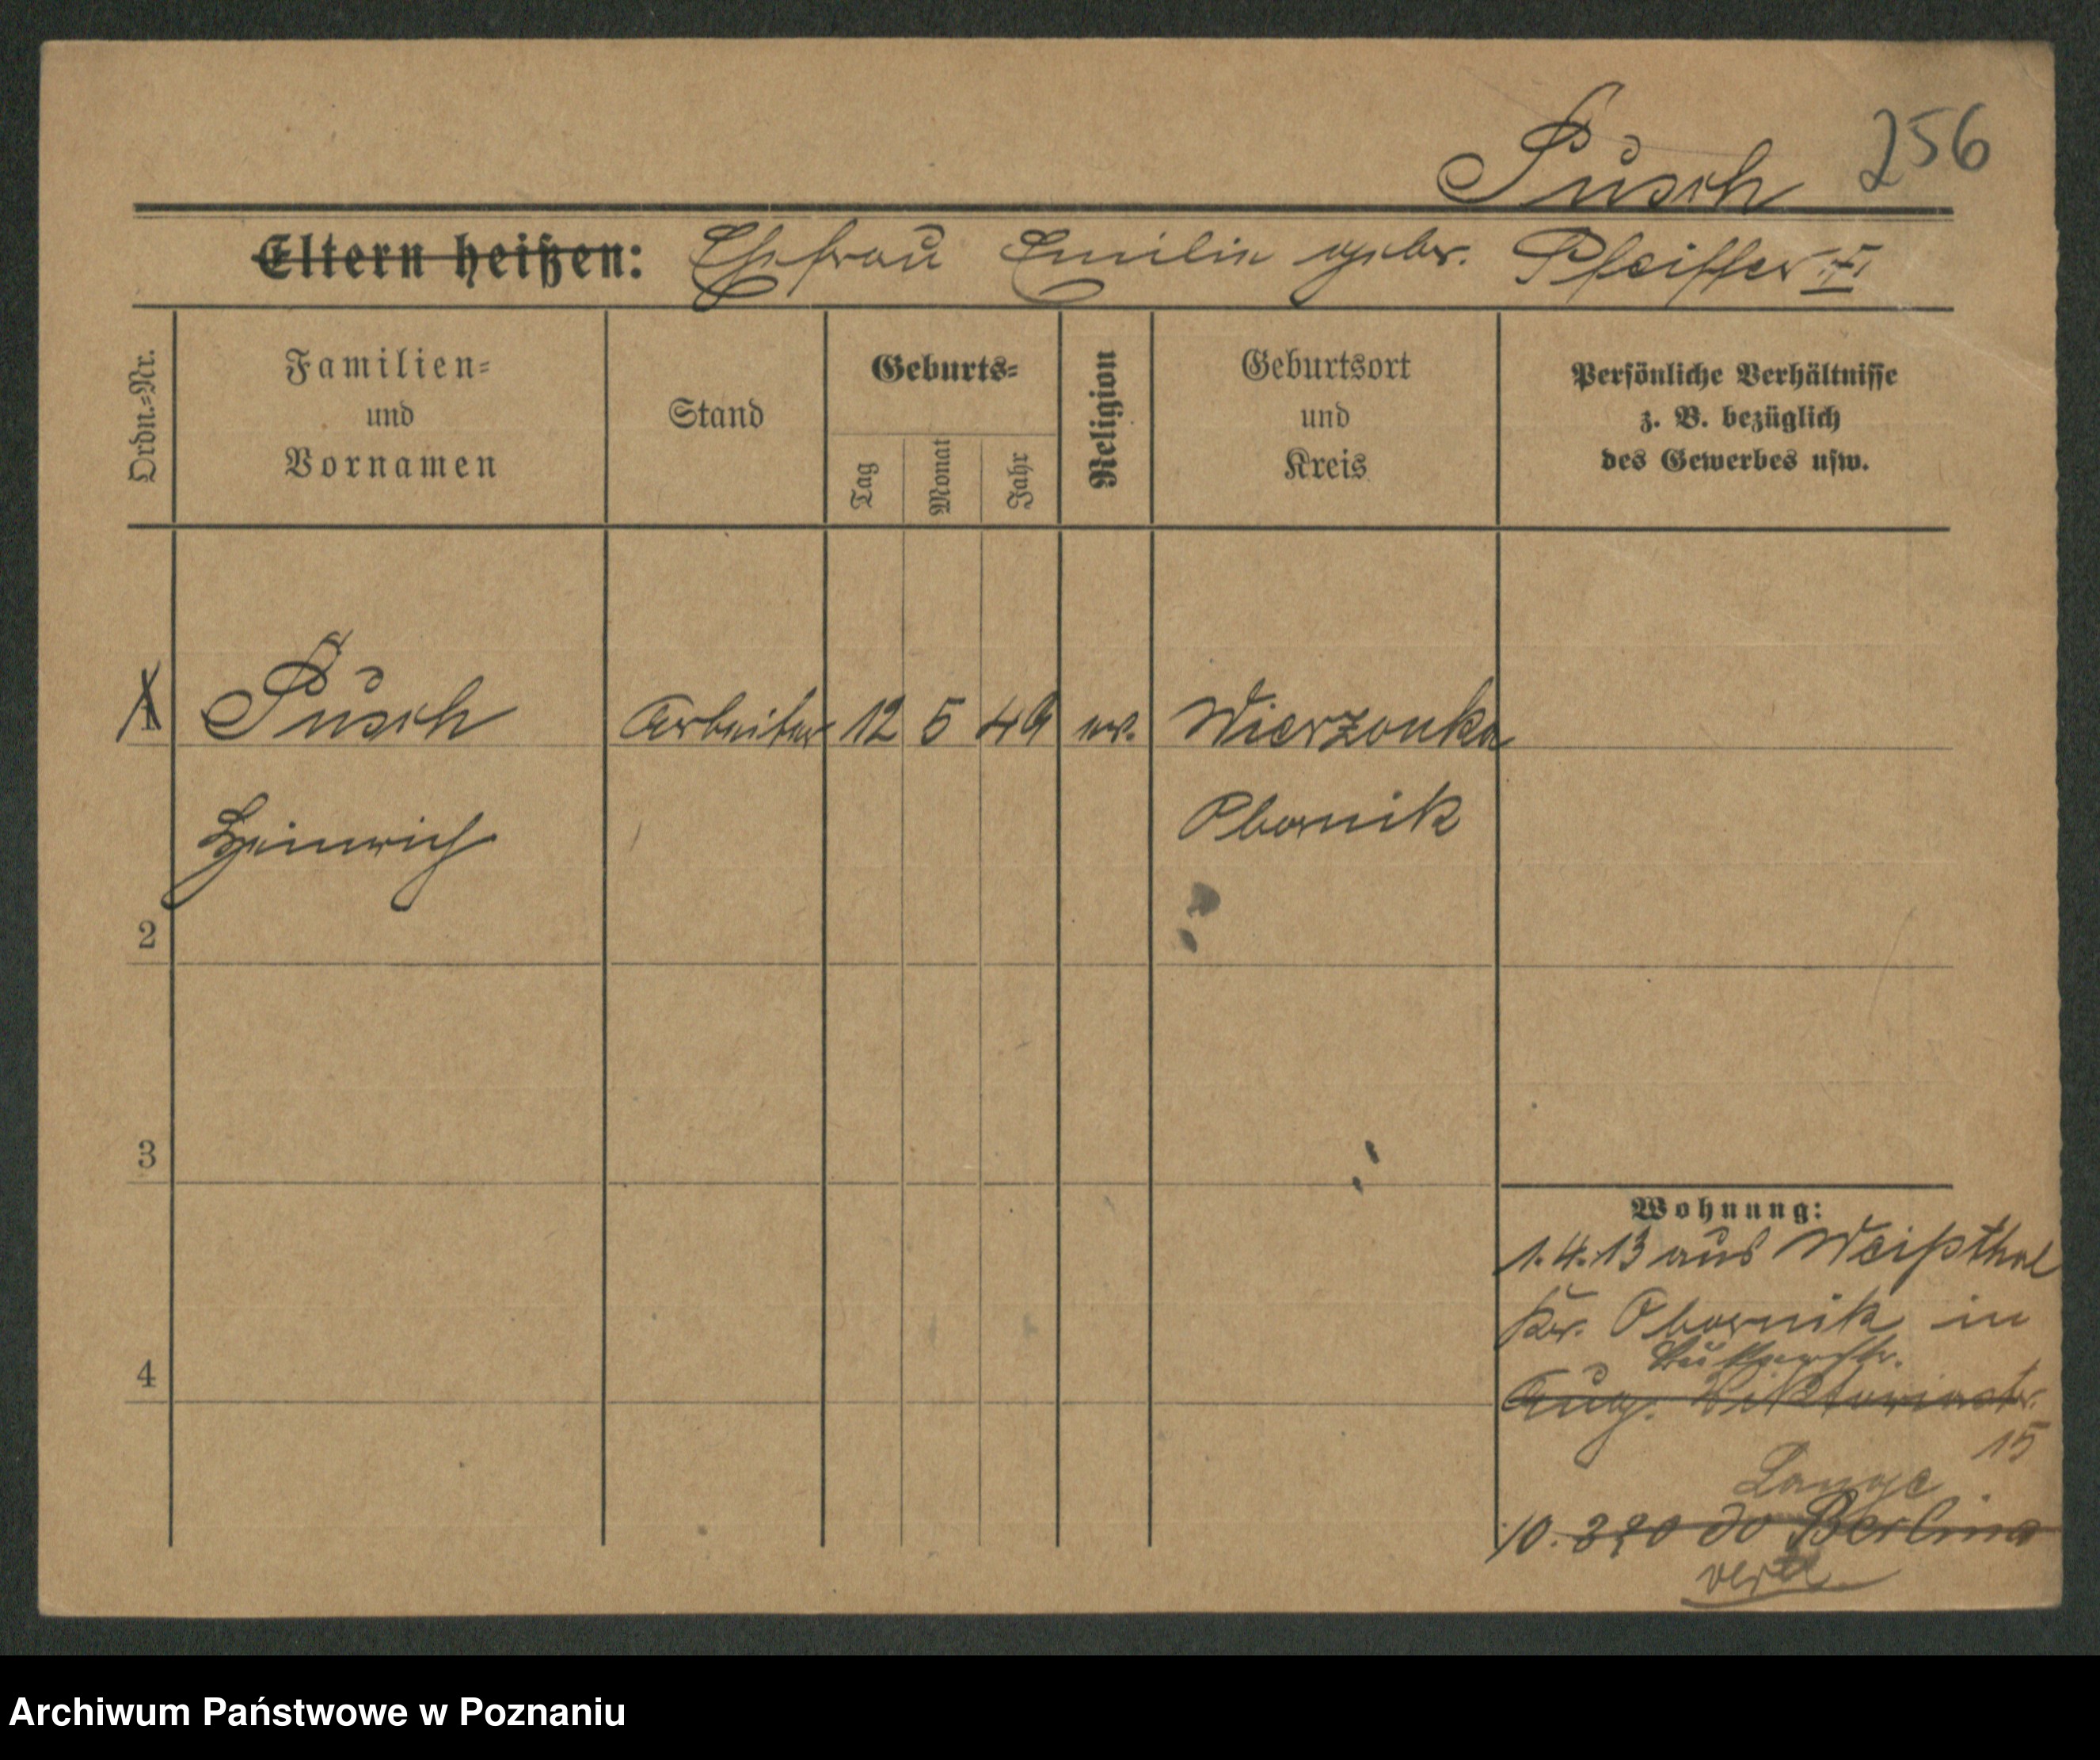 Pusch 256
Eltern heißen: Ehefrau Emilie gebor. Pfeiffer II
Ordn.=Nr.
Familien=
und
Vornamen
Stand
Geburts=
Tag
Monat
Jahr
Religion
Geburtsort
und
Kreis
Persönliche Verhältnisse
z. B. bezüglich
des Gewerbes usw.
1 Pusch Arbeiter 12 5 49 ev. Wierzonka
Heinrich Obornik
2
3
4
Wohnung:
1.4.13 aus Weißthal
Kr. Obornik in
Aug. Viktoriastr.
15
Lange
10. 3 20 do Berlina